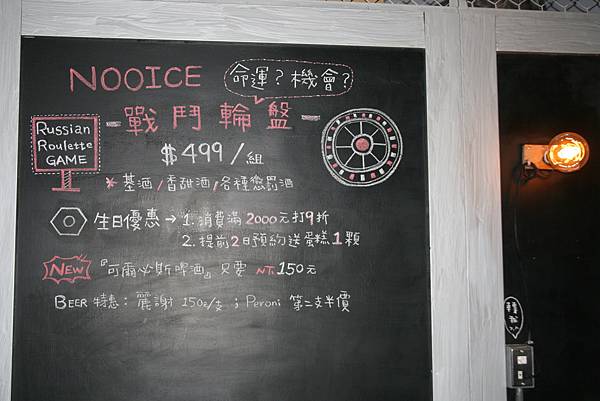 NOOICE 命運？機會？
-戰鬥輪盤-
Russian
Roulette
GAME
$499/組
* 基酒/香甜酒/各種懲罰酒
生日優惠→ 1. 消費滿2000元打9折
2. 提前2日預約送蛋糕1顆
NEW 『可爾必斯啤酒』只要 NT.150元
BEER 特惠：麗謝 150元/支；Peroni 第二支半價